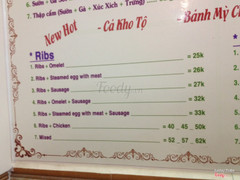 6. Sườn + Gà + Xúc
7. Thập cẩm (Sườn + Gà + Xúc Xích + Trứng)
New Hot
- Cá Kho Tộ
- Bánh Mỳ
* Ribs
1. Ribs + Omelet = 25k
2. Ribs + Steamed egg with meat = 27k
3. Ribs + Sausage = 26k
4. Ribs + Omelet + Sausage = 32k
5. Ribs + Steamed egg with meat + Sausage = 33k
6. Ribs + Chicken = 40 _ 45 _ 50k
7. Mixed = 52 _ 57 _ 62k
Foody